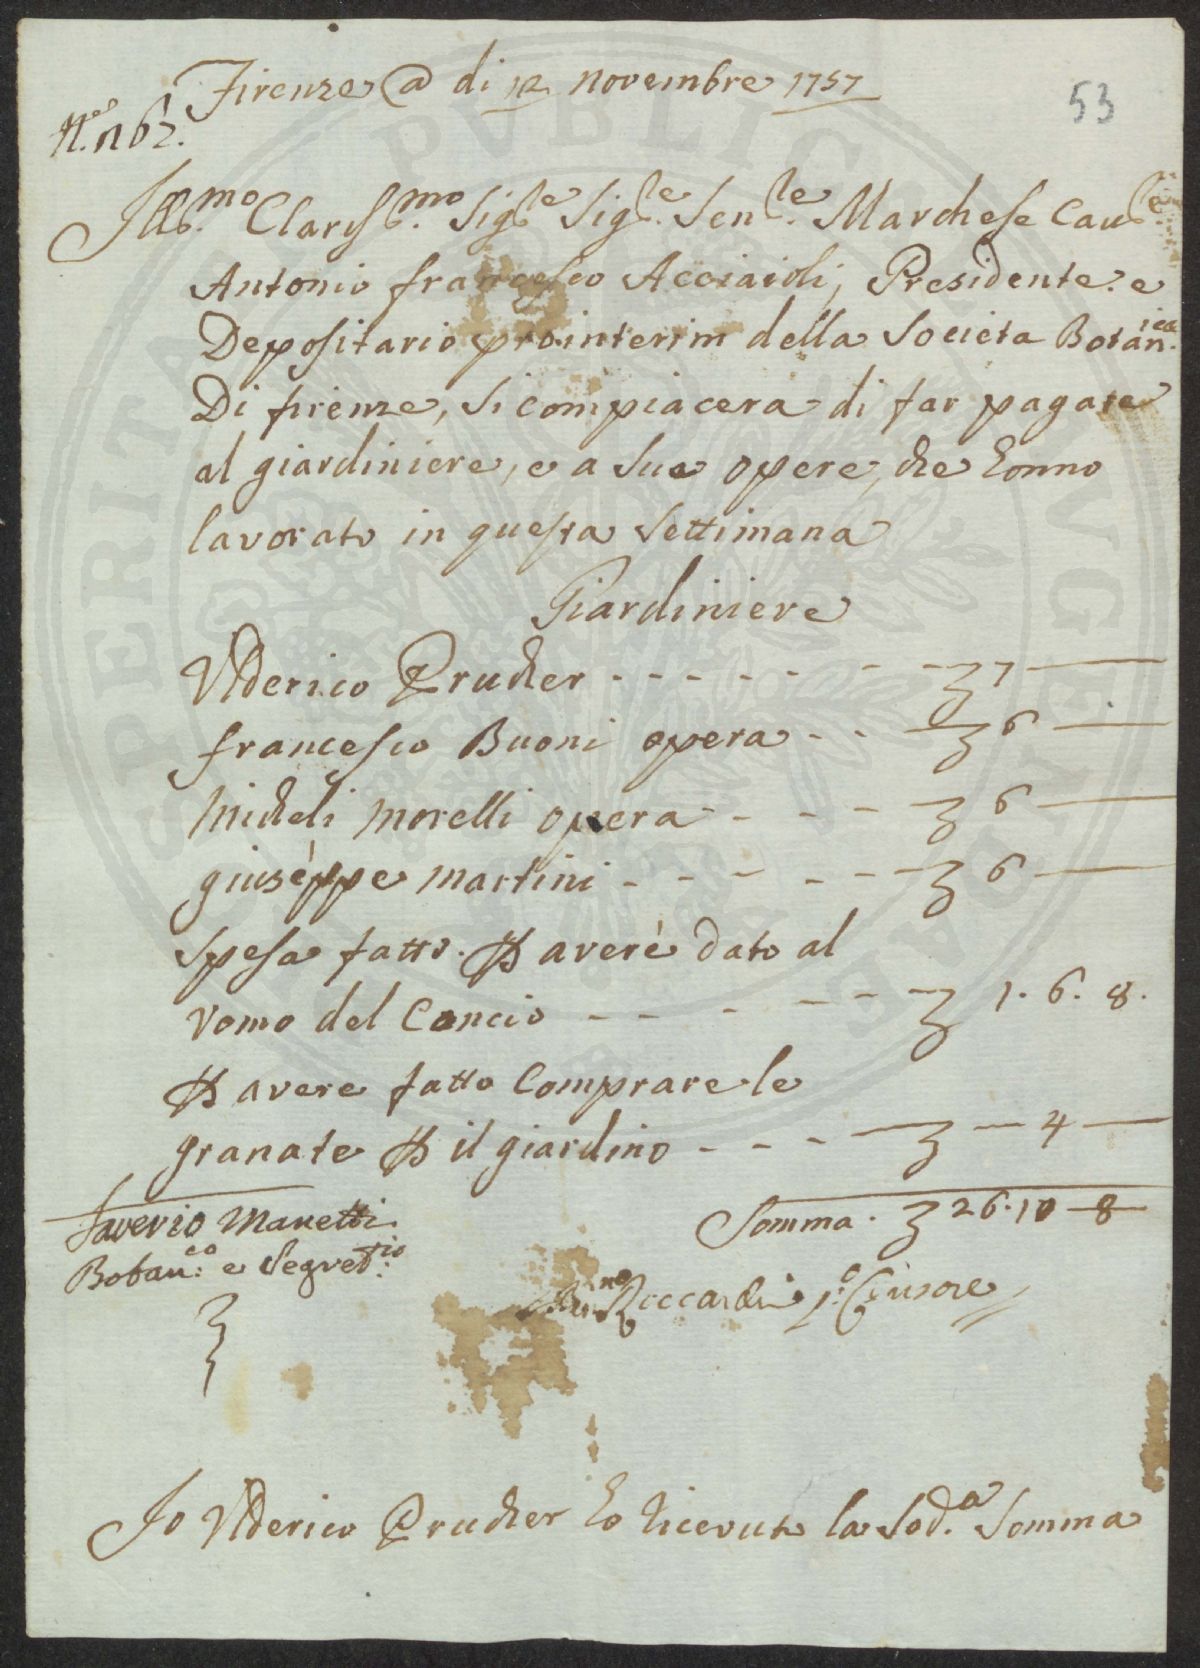 Firenze @ di 12 novembre 1757
53
N.o 167.
Ill.mo Clariss.mo Sig.re Sig.re Sen.re Marchese Cav.re
Antonio francesco Acciaioli, Presidente e
Depositario prointerim della Societa Botan.ica
Di firenze, si compiacera di far pagare
al giardiniere, e a sue opere, che honno
lavorato in questa settimana
Giardiniere
Vlderico Prucher - - - - - - - - 7 —
francesco Buoni opera - - - 6 —
Micheli morelli opera - - - - 6 —
giuseppe martini - - - - - - - 6 —
spesa fatto. P avere dato al
vomo del Concio - - - - - - - 1. 6. 8.
P avere fatto Comprare le
granate P il giardino - - - — — 4 —
Saverio Manetti
Somma. 26. 10 — 8
Botan.co e Segret.rio
Riccardi P.o Censore
Jo Vlderico Prucher ho ricevuto la Sod.a Somma
PROSPERITATI PUBLICAE AUGENDAE